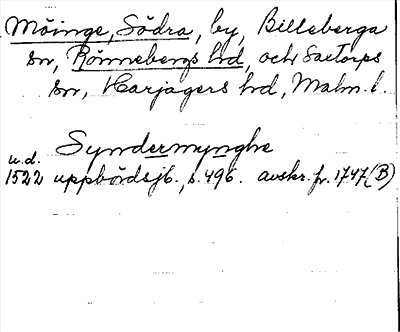 Möinge, Södra, by, Billeberga
sn, Rönnebergs hd, och Saxtorps
sn, Harjagers hd, Malm. l.
Syndermynghe
u.d.
1522 uppbördsjb., s. 496. avskr. fr. 1747 (B)